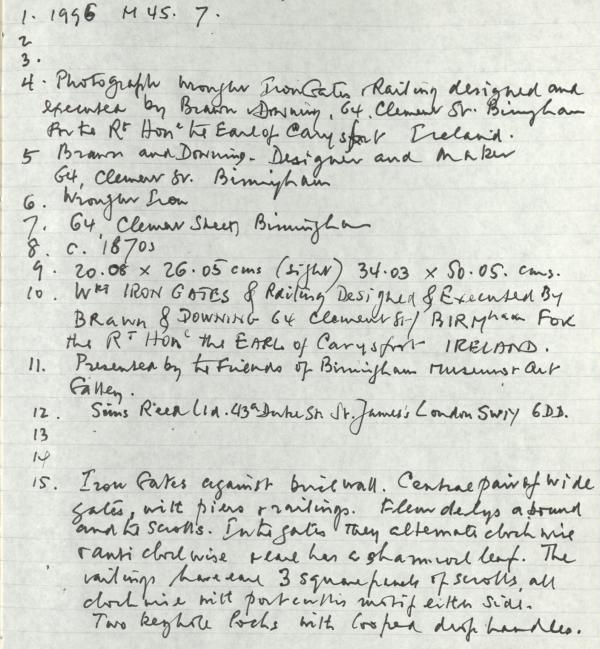 1. 1996 M 45. 7.
2
3.
4. Photograph wrought Iron Gates & Railing designed and
executed by Brawn & Downing, 64, Clement St. Birmingham
for the Rt Hone the Earl of Carysfort Ireland.
5 Brawn and Downing - Designer and Maker
64, Clement St. Birmingham
6. Wrought Iron
7. 64, Clement Street, Birmingham
8. c. 1870s
9. 20.08 × 26.05 cms (sight) 34.03 × 50.05. cms.
10. Wht IRON GATES & Railing Designed & Executed By
BRAWN & DOWNING 64 Clement St/ BIRMham FOR
the RT HONe the EARL of Carysfort IRELAND.
11. Presented by the Friends of Birmingham Museums & Art
Gallery.
12. Sims Reed Ltd. 43a Duke St. St. James's London SW1Y 6DD.
13
14
15. Iron Gates against brick wall. Central pair of wide
gates, with piers & railings. Fleur de lys around
and the scrolls. In the gates they alternate clockwise
& anti clockwise & each has a shamrock leaf. The
railings have each 3 square panels of scrolls, all
clockwise with portcullis motif either side.
Two keyhole locks with looped drop handles.